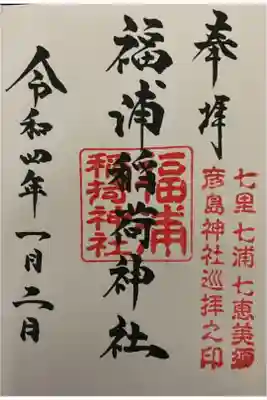 奉拝
七里七浦七恵美須
彦島神社巡拝之印
福浦稲荷神社
福浦
稲荷神社
令和四年一月二日